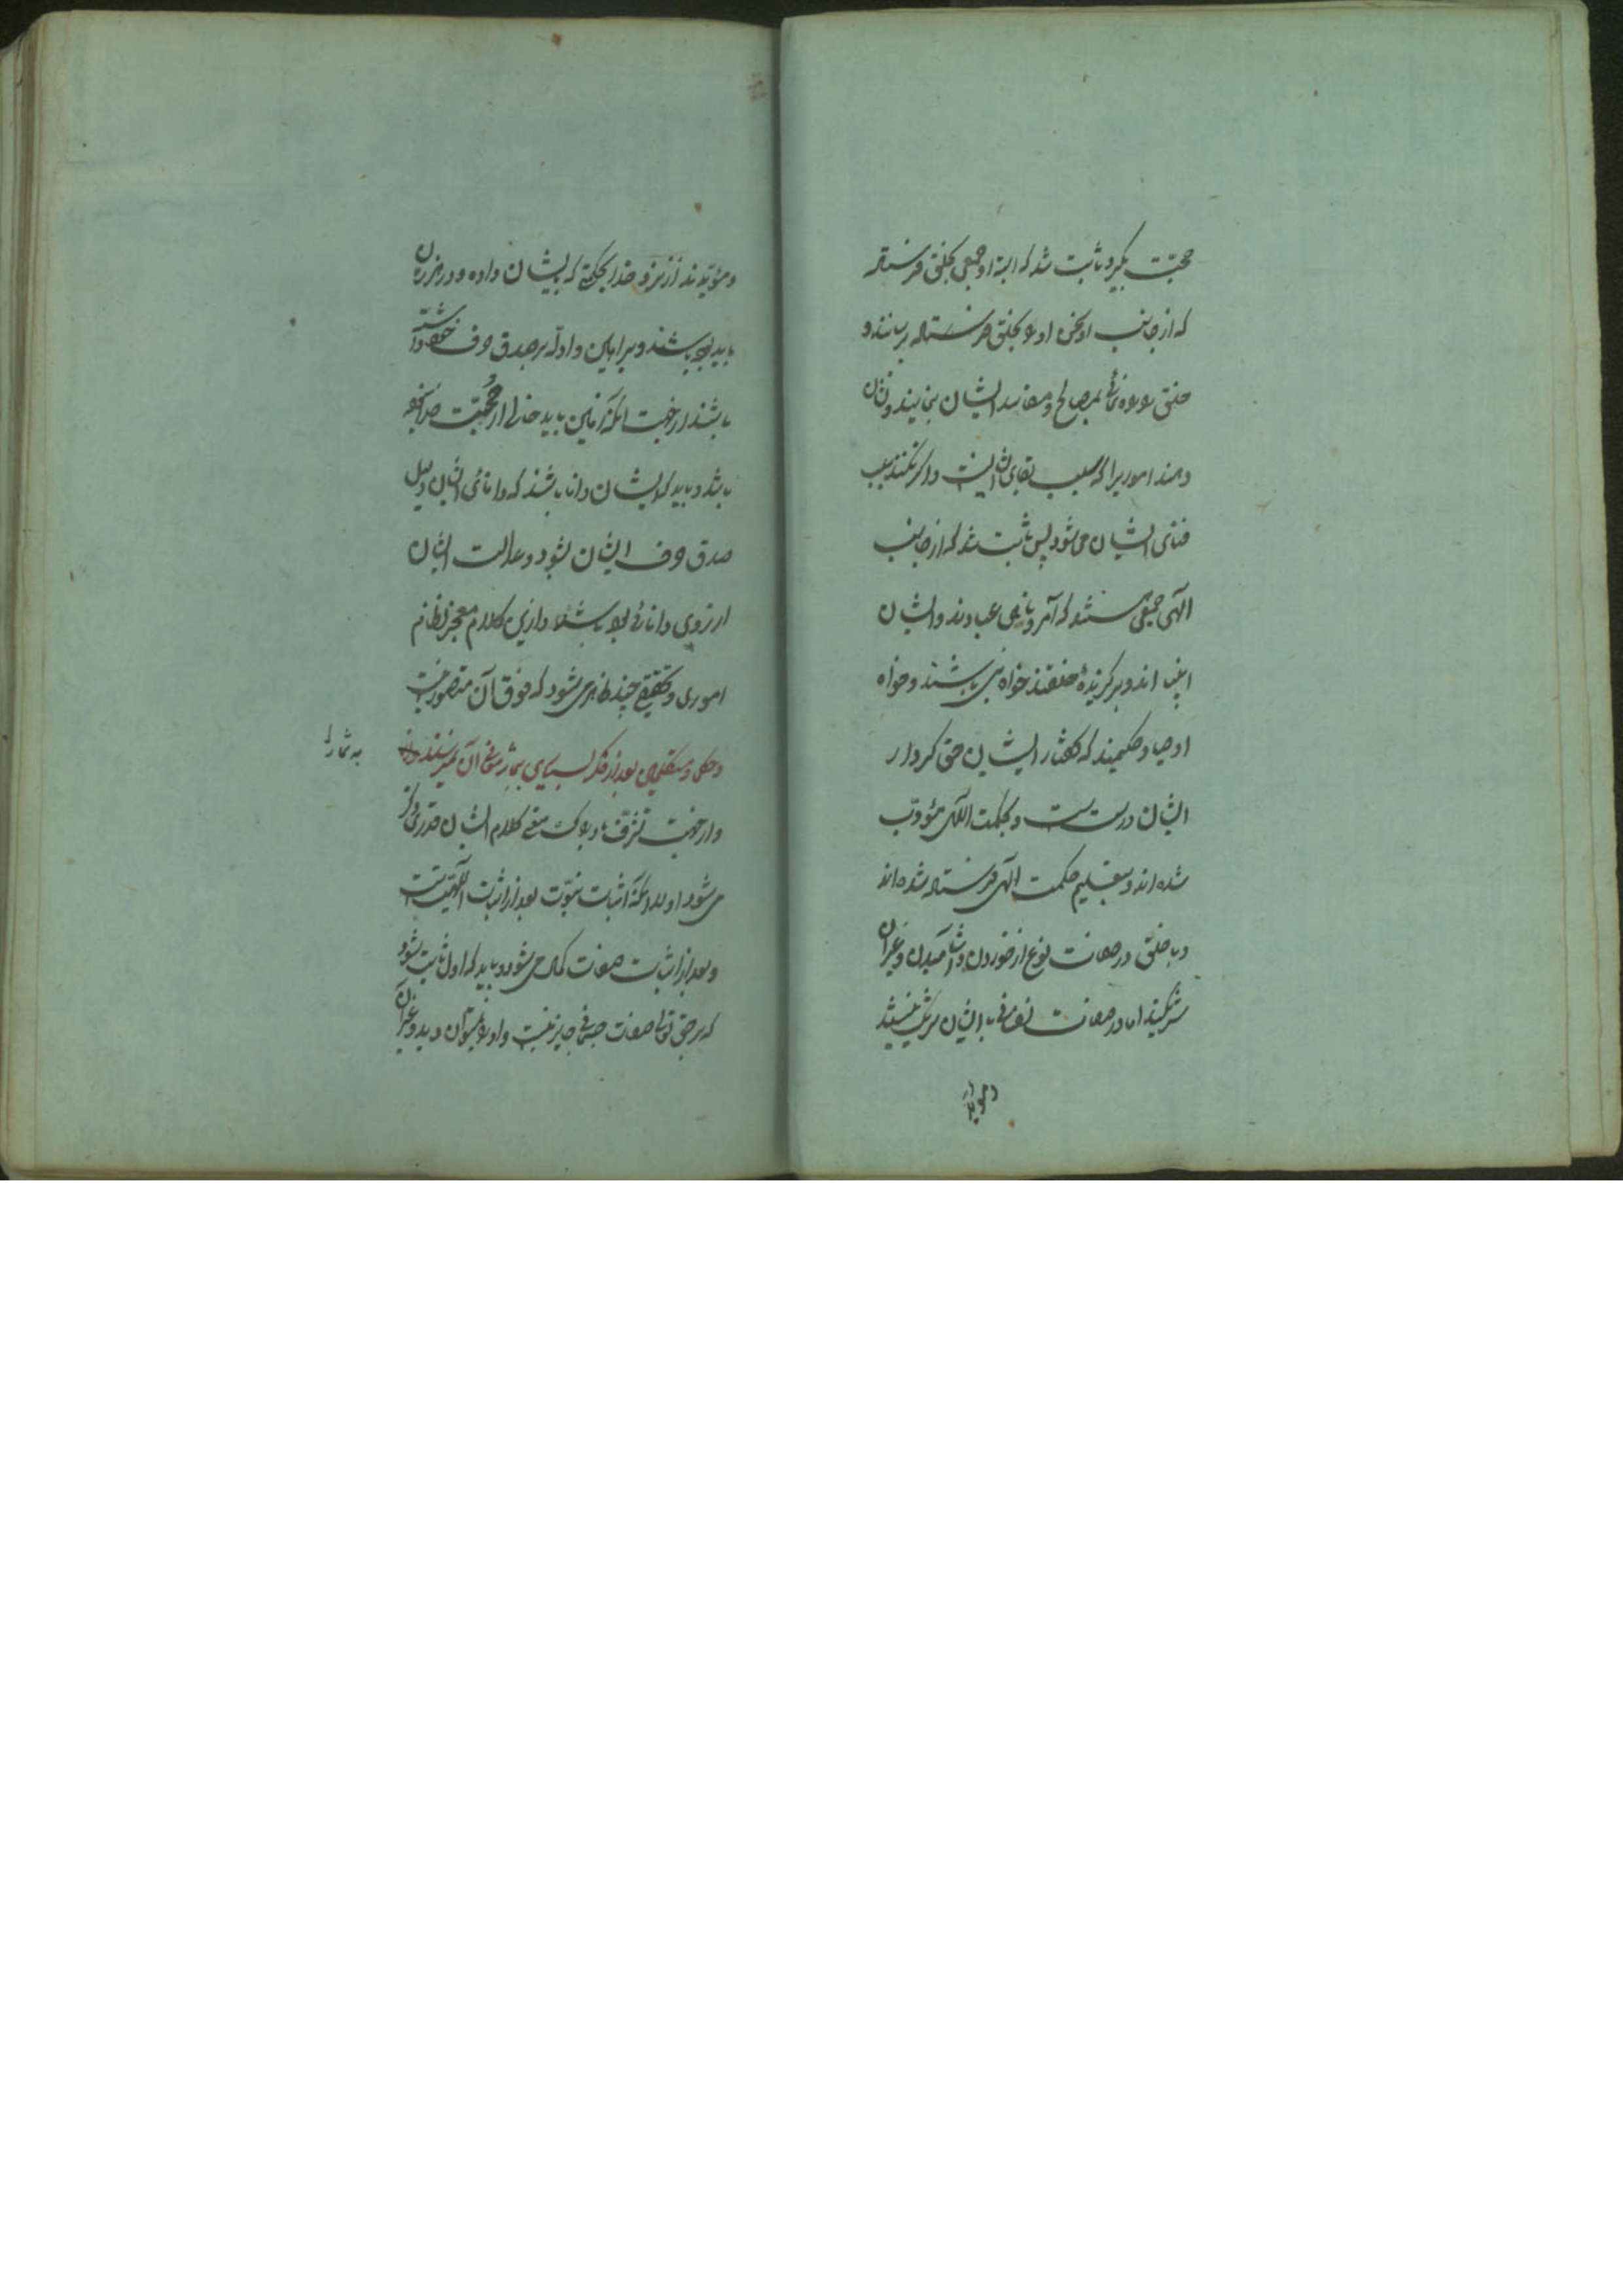 حجت بگیرد ثابت شد که البته او جمعی بخلق فرستاده
که از جانب او سخن او بخلق فرستاده برسانند و
خلق را راه نمائی بمصالح و مفاسد ایشان بنمایند و نشان
دهند اموریرا که سبب بقای ایشانست و اگر نکنند سبب
فنای ایشان می شود پس ثابت شد که از جانب
الهی جمعی هستند که آمر و ناهی عبادند و ایشان
انبیا اند و برگزیدهٔ خلقند خواه نبی باشند و خواه
اوصیا و حکیمند که گفتار ایشان حق کردار
ایشان درست است و بحکمت الهی مؤدب
شده اند و بتعلیم حکمت الهی فرستاده شده اند
و با خلق در صفات نوع از خوردن و آشامیدن و غیر آن
شریکند اما در صفات نفسانی با ایشان شریک نیستند
و مؤیدند
و مؤیدند از نزد خدا بحکمتی که بایشان داده و در هر زمان
باید که باشند و براهین و ادله بر صدق حرف خود داشته
باشند از جهت آنکه زمین باید خالی از حجت خدا نبوده
باشد و باید که ایشان دانا باشند که دانائی ایشان دلیل
صدق حرف ایشان بشود و عدالت ایشان
از روی دانائی باشد و ازین کلام معجز نظام
اموری و تحقیقی چند ظاهر می شود که فوق آن متصور نیست
و حکما و متکلمین بعد از فکر بسیاری بمآثر معانی آن نمیرسند
به شمار
و از جهت تشرف بادراک معنی کلام ایشان قدری ذکر
می شود اولا آنکه اثبات نبوت بعد از اثبات الهیت است
و بعد از اثبات صفات کمال می شود و باید که اول ثابت شود
که بر حق تعالی صفات جسمانی جایز نیست و او را نمیتوان دید و غیر آن